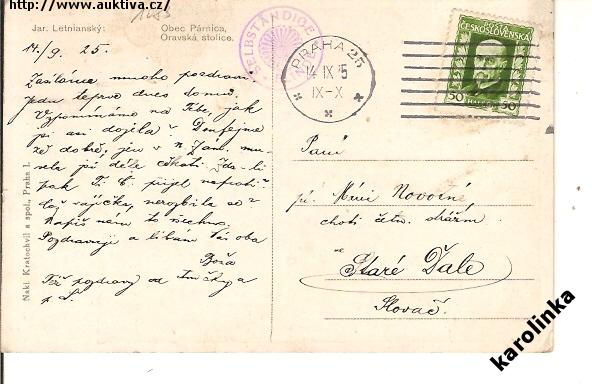 http://www.auktiva.cz/
Jar. Letnianský:
Obec Párnica,
Oravská stolice.
14/9. 25.
Zasíláme mnoho pozdravů
jedu teprve dnes domů.
Vzpomínáme na Tebe, jak
jsi asi dojela. Doufejme
že dobře, jen v N. Zám. mu-
sela jsi déle čekati.
přijel naproti
Napiš nám to všechno.
Pozdravuji a líbám Vás oba
Boža
Též pozdravy od
p. S.
Nakl. Kratochvíl a spol., Praha I.
SELBSTÄNDIGE
PRAHA 25
14 IX 25
IX-X
POSTA
ČESKOSLOVENSKÁ
50 50
Paní
Novotné
choti četn. strážm.
Staré Ďale
Slovač.
karolinka